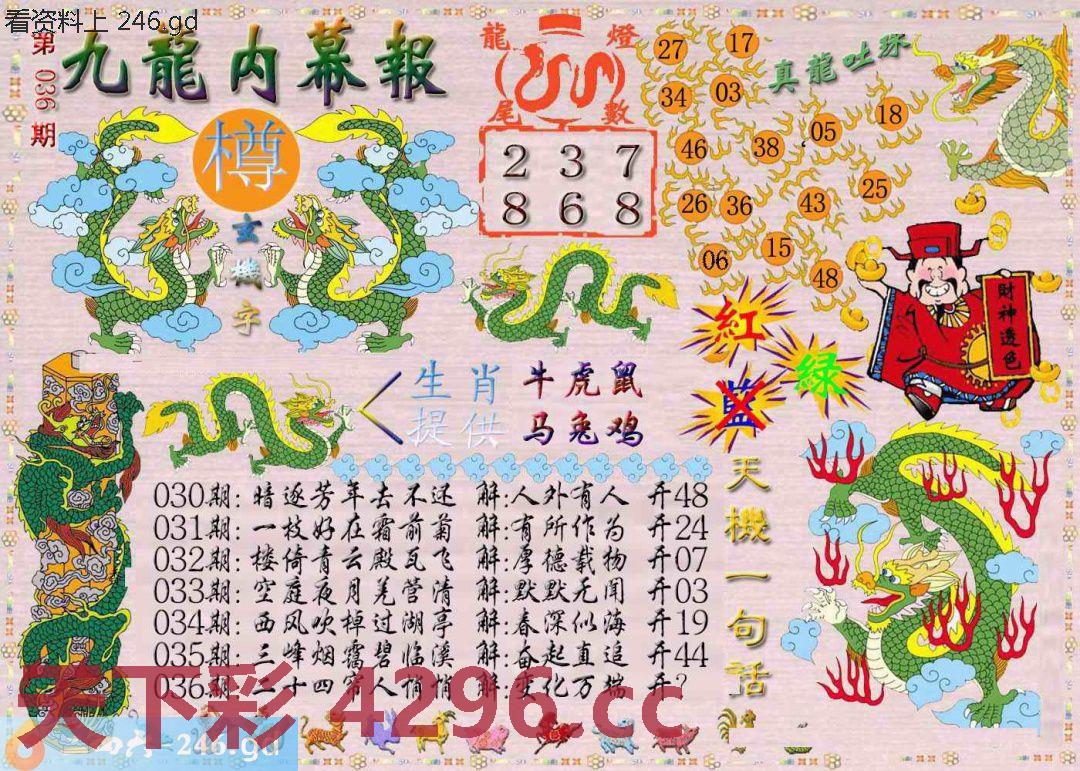 看资料上 246.gd
第036期
九龍内幕報
樽
玄機字
龍燈
尾數
2 3 7
8 6 8
真龍吐珠
27 17
34 03
46 38 05 18
26 36 43 25
06 15 48
財神透色
紅
绿
藍
生肖 牛虎鼠
提供 马兔鸡
天機一句話
030期:暗逐芳年去不还 解:人外有人 开48
031期:一枝好在霜前菊 解:有所作为 开24
032期:楼倚青云殿瓦飞 解:厚德载物 开07
033期:空庭夜月羌管清 解:默默无闻 开03
034期:西风吹棹过湖亭 解:春深似海 开19
035期:三峰烟霭碧临溪 解:奋起直追 开44
036期:二十四帘人悄悄 解:变化万端 开?
天下彩 4296.cc
246.gd